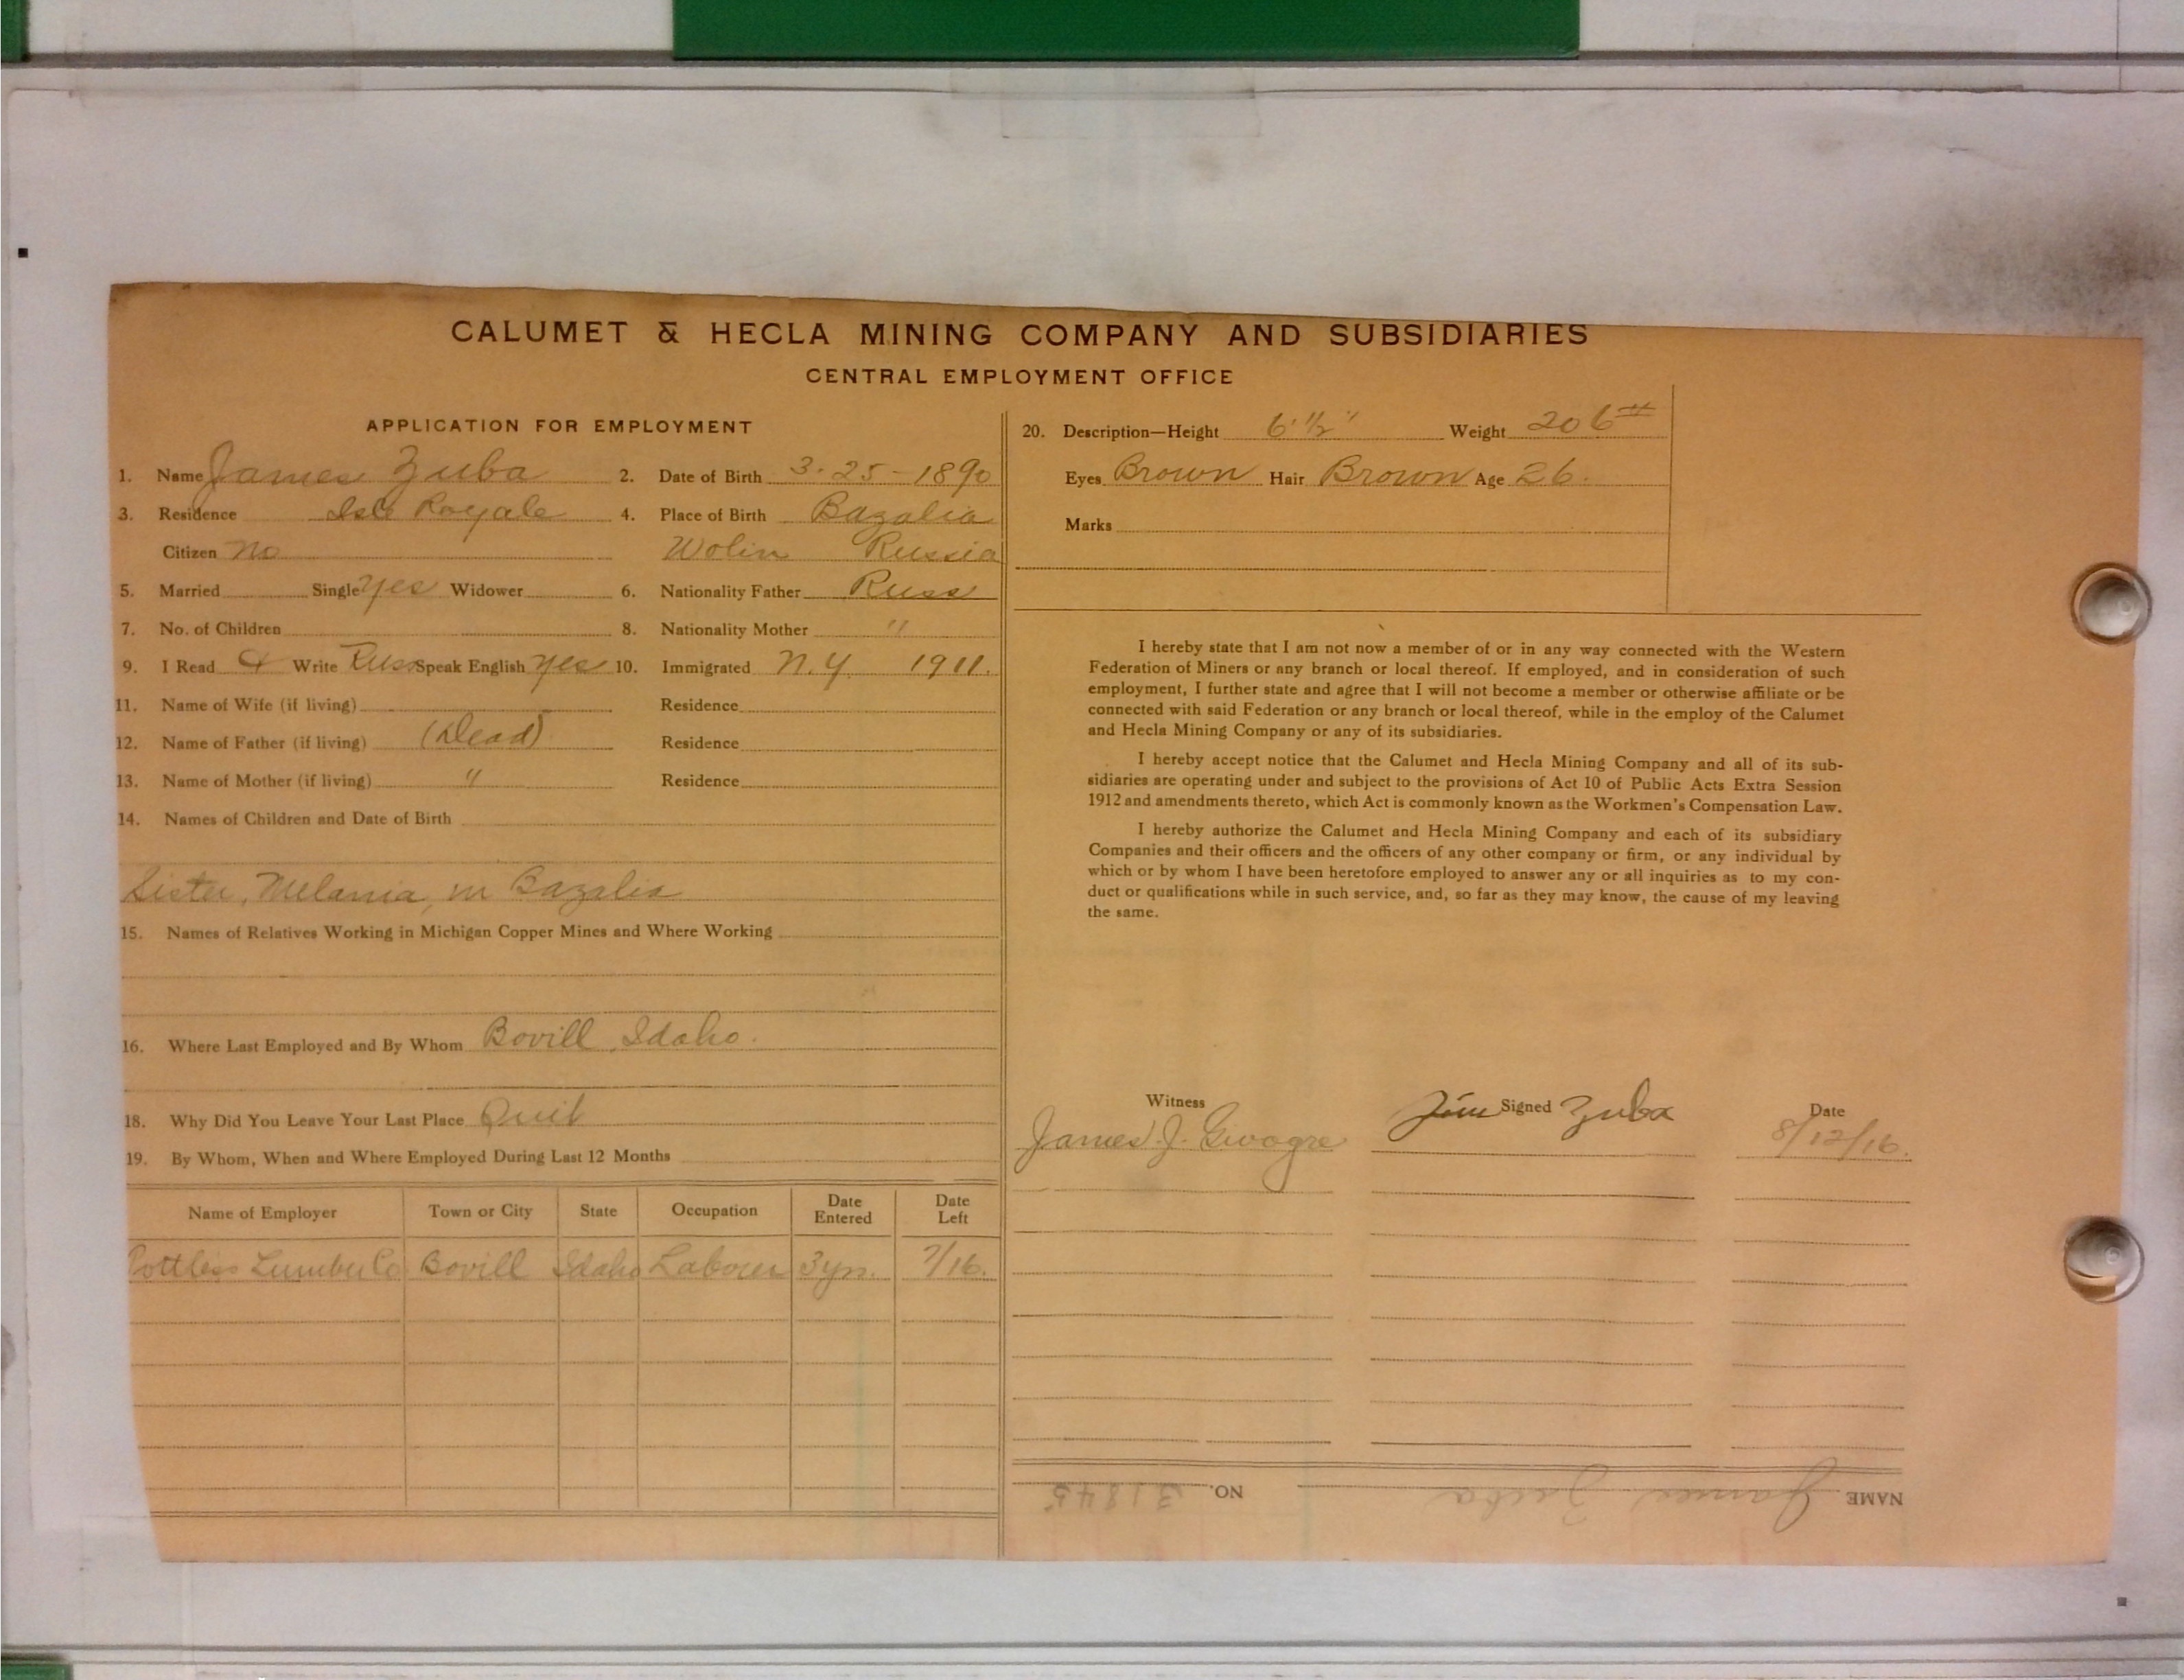 CALUMET & HECLA MINING COMPANY AND SUBSIDIARIES
CENTRAL EMPLOYMENT OFFICE
APPLICATION FOR EMPLOYMENT
1. Name James Zuba 2. Date of Birth 3-25-1890
3. Residence Isle Royale 4. Place of Birth Bazalia
Citizen No Wolin Russia
5. Married Single yes Widower 6. Nationality Father Russ
7. No. of Children 8. Nationality Mother "
9. I Read & Write Russ Speak English yes 10. Immigrated N.Y. 1911.
11. Name of Wife (if living) Residence
12. Name of Father (if living) (Dead) Residence
13. Name of Mother (if living) " Residence
14. Names of Children and Date of Birth
Sister, Melania, in Bazalia
15. Names of Relatives Working in Michigan Copper Mines and Where Working
16. Where Last Employed and By Whom Bovill, Idaho.
18. Why Did You Leave Your Last Place Quit
19. By Whom, When and Where Employed During Last 12 Months
Name of Employer Town or City State Occupation Date Entered Date Left
Lumber Co Bovill Idaho Laborer 3 yrs. 7/16.
20. Description—Height 6' ½" Weight 206#
Eyes Brown Hair Brown Age 26.
Marks
I hereby state that I am not now a member of or in any way connected with the Western
Federation of Miners or any branch or local thereof. If employed, and in consideration of such
employment, I further state and agree that I will not become a member or otherwise affiliate or be
connected with said Federation or any branch or local thereof, while in the employ of the Calumet
and Hecla Mining Company or any of its subsidiaries.
I hereby accept notice that the Calumet and Hecla Mining Company and all of its sub-
sidiaries are operating under and subject to the provisions of Act 10 of Public Acts Extra Session
1912 and amendments thereto, which Act is commonly known as the Workmen's Compensation Law.
I hereby authorize the Calumet and Hecla Mining Company and each of its subsidiary
Companies and their officers and the officers of any other company or firm, or any individual by
which or by whom I have been heretofore employed to answer any or all inquiries as to my con-
duct or qualifications while in such service, and, so far as they may know, the cause of my leaving
the same.
Witness Signed Date
James J. Jim Zuba 8/12/16.
NAME James Zuba NO. 31845